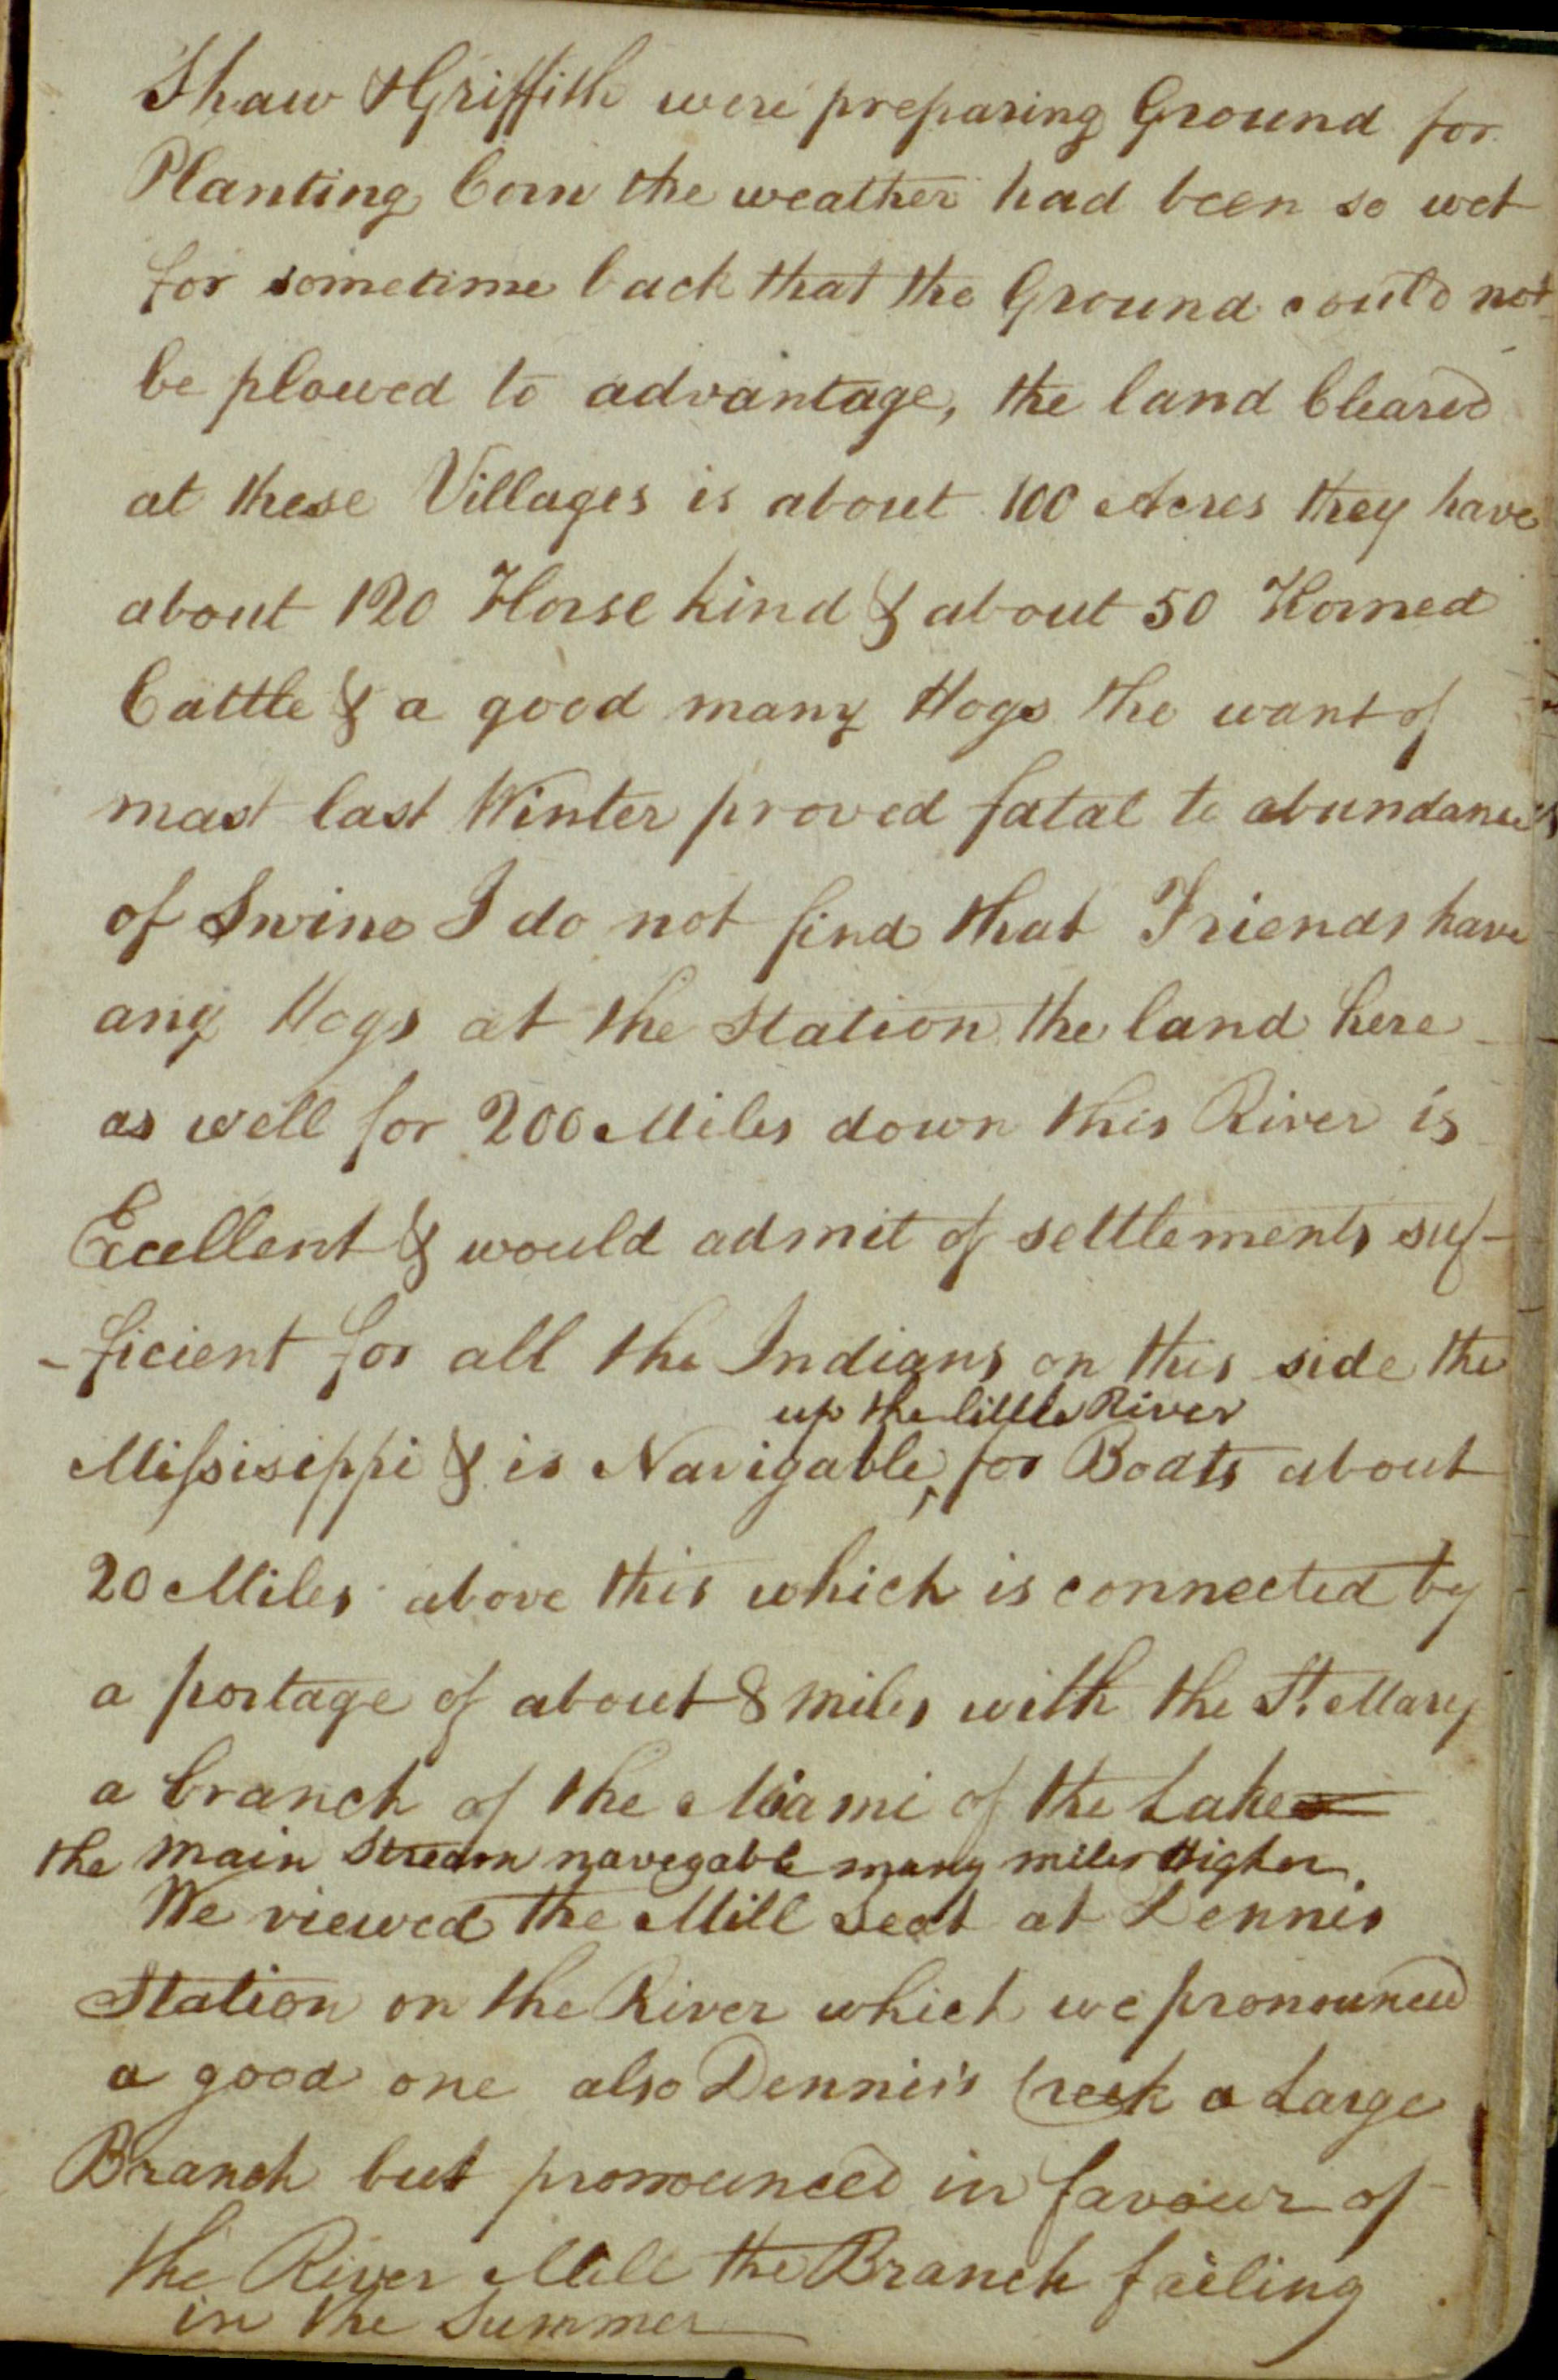 Shaw & Griffith were preparing Ground for
Planting Corn the weather had been so wet
for sometime back that the Ground could not
be plowed to advantage, the land Cleared
at these Villages is about 100 Acres they have
about 120 Horse kind & about 50 Horned
Cattle & a good many Hogs the want of
mast last Winter proved fatal to abundance
of Swine I do not find that Friends have
any Hogs at the Station the land here
as well for 200 Miles down this River is
Excellent & would admit of settlements suf-
-ficient for all the Indians on this side the
up the little River
Missisippi & is Navigable, for Boats about
20 Miles above this which is connected by
a portage of about 8 miles with the St. Mary
a branch of the Miami of the Lakes
the main Stream navegable many miles Higher.
We viewed the Mill Seat at Dennis
Station on the River which we pronounced
a good one also Dennis's Creek a Large
Branch but pronounced in favour of
the River Mill the Branch failing
in the Summer